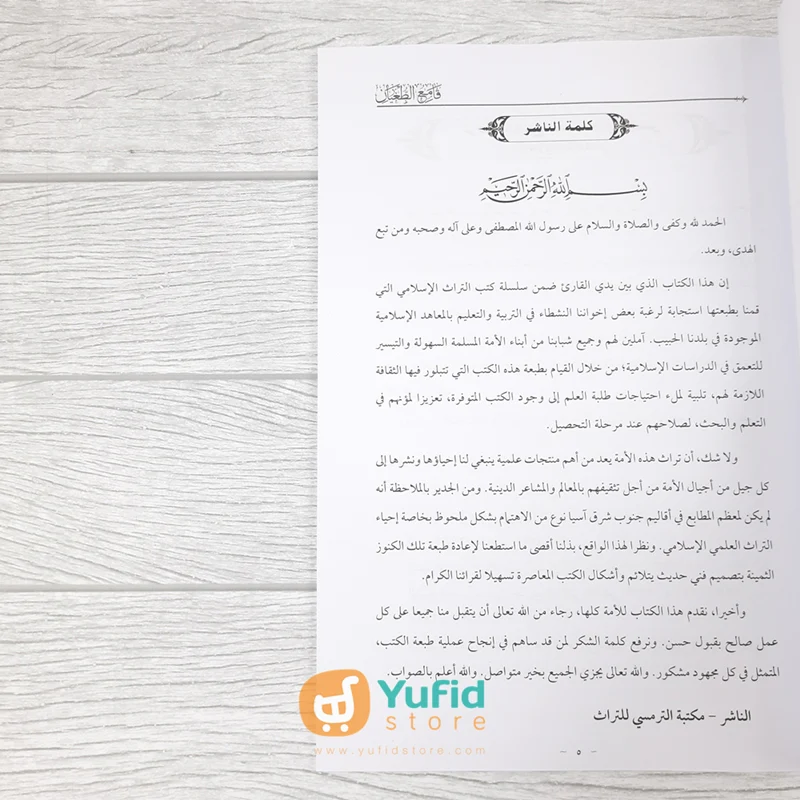 قامع الطغيان
كلمة الناشر
بسم الله الرحمن الرحيم
الحمد لله وكفى والصلاة والسلام على رسول الله المصطفى وعلى آله وصحبه ومن تبع
الهدى، وبعد.
إن هذا الكتاب الذي بين يدي القارئ ضمن سلسلة كتب التراث الإسلامي التي
قمنا بطبعتها استجابة لرغبة بعض إخواننا النشطاء في التربية والتعليم بالمعاهد الإسلامية
الموجودة في بلدنا الحبيب. آملين لهم وجميع شبابنا من أبناء الأمة المسلمة السهولة والتيسير
للتعمق في الدراسات الإسلامية؛ من خلال القيام بطبعة هذه الكتب التي تتبلور فيها الثقافة
اللازمة لهم، تلبية لملء احتياجات طلبة العلم إلى وجود الكتب المتوفرة، تعزيزا لمؤنهم في
التعلم والبحث، لصلاحهم عند مرحلة التحصيل.
ولا شك، أن تراث هذه الأمة يعد من أهم منتجات علمية ينبغي لنا إحياؤها ونشرها إلى
كل جيل من أجيال الأمة من أجل تثقيفهم بالمعالم والمشاعر الدينية. ومن الجدير بالملاحظة أنه
لم يكن لمعظم المطابع في أقاليم جنوب شرق آسيا نوع من الاهتمام بشكل ملحوظ بخاصة إحياء
التراث العلمي الإسلامي. ونظرا لهذا الواقع، بذلنا أقصى ما استطعنا لإعادة طبعة تلك الكنوز
الثمينة بتصميم فني حديث يتلائم وأشكال الكتب المعاصرة تسهيلا لقرائنا الكرام.
وأخيرا، نقدم هذا الكتاب للأمة كلها، رجاء من الله تعالى أن يتقبل منا جميعا على كل
عمل صالح بقبول حسن. ونرفع كلمة الشكر لمن قد ساهم في إنجاح عملية طبعة الكتب،
المتمثل في كل مجهود مشكور. والله تعالى يجزي الجميع بخير متواصل. والله أعلم بالصواب.
الناشر – مكتبة الترمسي للتراث
Yufid
store
www.yufidstore.com
~ ٥ ~